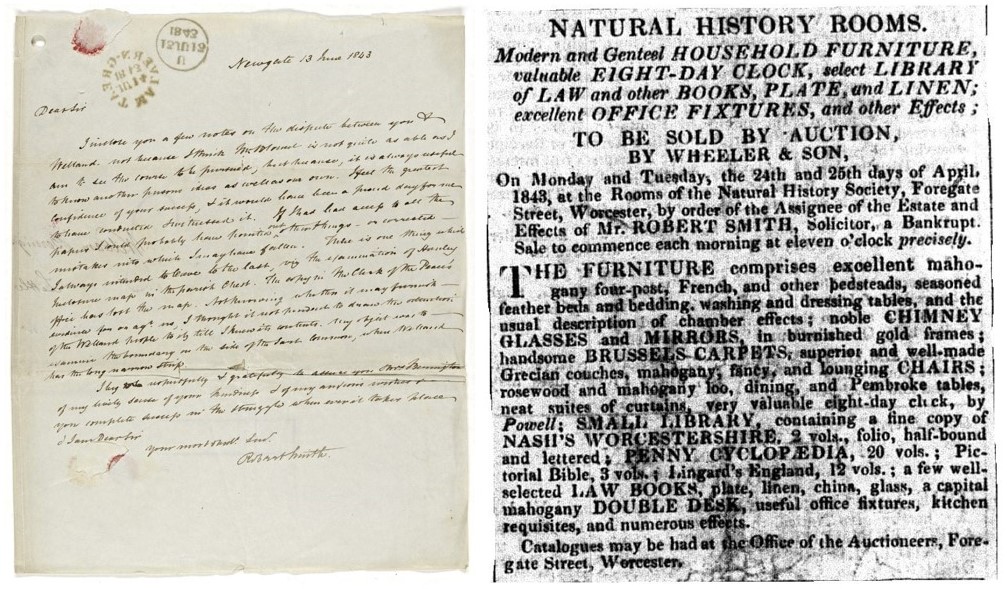 13JU13
1843
U
Newgate 13 June 1843
Dear Sir
I inclose you a few notes on the dispute between you &
Welland. not because I think Mr is not quite as able as I
am to see the course to be pursued, but because, it is always useful
to know another persons ideas as well as our own. I feel the greatest
confidence of your success, & it would have been a proud day for me
to have conducted & witnessed it. If I had had access to all the
papers I could probably have pointed out other things - or corrected -
mistakes into which I may have fallen. There is one thing which
I always intended to leave to the last, viz the examination of Hanley
Inclosure map in the parish Chest. The copy in the Clerk of the Peace's
office has lost the map. Not knowing whether it may furnish
evidence for or agt us, I thought it not prudent to draw the attention
of the Welland people to it, till I knew its contents. My object was to
examine the boundary on the side of the Common, where Welland
has the long narrow strip
I beg most respectfully & gratefully to assure you & Mrs
of my lively sense of your kindness & of my anxious wishes for
your complete success in the struggle whenever it takes place
I am Dear Sir
your most obedt Servt
Robert Smith
NATURAL HISTORY ROOMS.
Modern and Genteel HOUSEHOLD FURNITURE,
valuable EIGHT-DAY CLOCK, select LIBRARY
of LAW and other BOOKS, PLATE, and LINEN;
excellent OFFICE FIXTURES, and other Effects;
TO BE SOLD BY AUCTION,
BY WHEELER & SON,
On Monday and Tuesday, the 24th and 25th days of April,
1843, at the Rooms of the Natural History Society, Foregate
Street, Worcester, by order of the Assignee of the Estate and
Effects of Mr. ROBERT SMITH, Solicitor, a Bankrupt.
Sale to commence each morning at eleven o'clock precisely.
THE FURNITURE comprises excellent maho-
gany four-post, French, and other bedsteads, seasoned
feather beds and bedding, washing and dressing tables, and the
usual description of chamber effects; noble CHIMNEY
GLASSES and MIRRORS, in burnished gold frames;
handsome BRUSSELS CARPETS, superior and well-made
Grecian couches, mahogany, fancy, and lounging CHAIRS;
rosewood and mahogany loo, dining, and Pembroke tables,
neat suites of curtains, very valuable eight-day clock, by
Powell; SMALL LIBRARY, containing a fine copy of
NASH'S WORCESTERSHIRE, 2 vols., folio, half-bound
and lettered; PENNY CYCLOPÆDIA, 20 vols.; Pic-
torial Bible, 3 vols.; Lingard's England, 12 vols.; a few well-
selected LAW BOOKS, plate, linen, china, glass, a capital
mahogany DOUBLE DESK, useful office fixtures, kitchen
requisites, and numerous effects.
Catalogues may be had at the Office of the Auctioneers, Fore-
gate Street, Worcester.